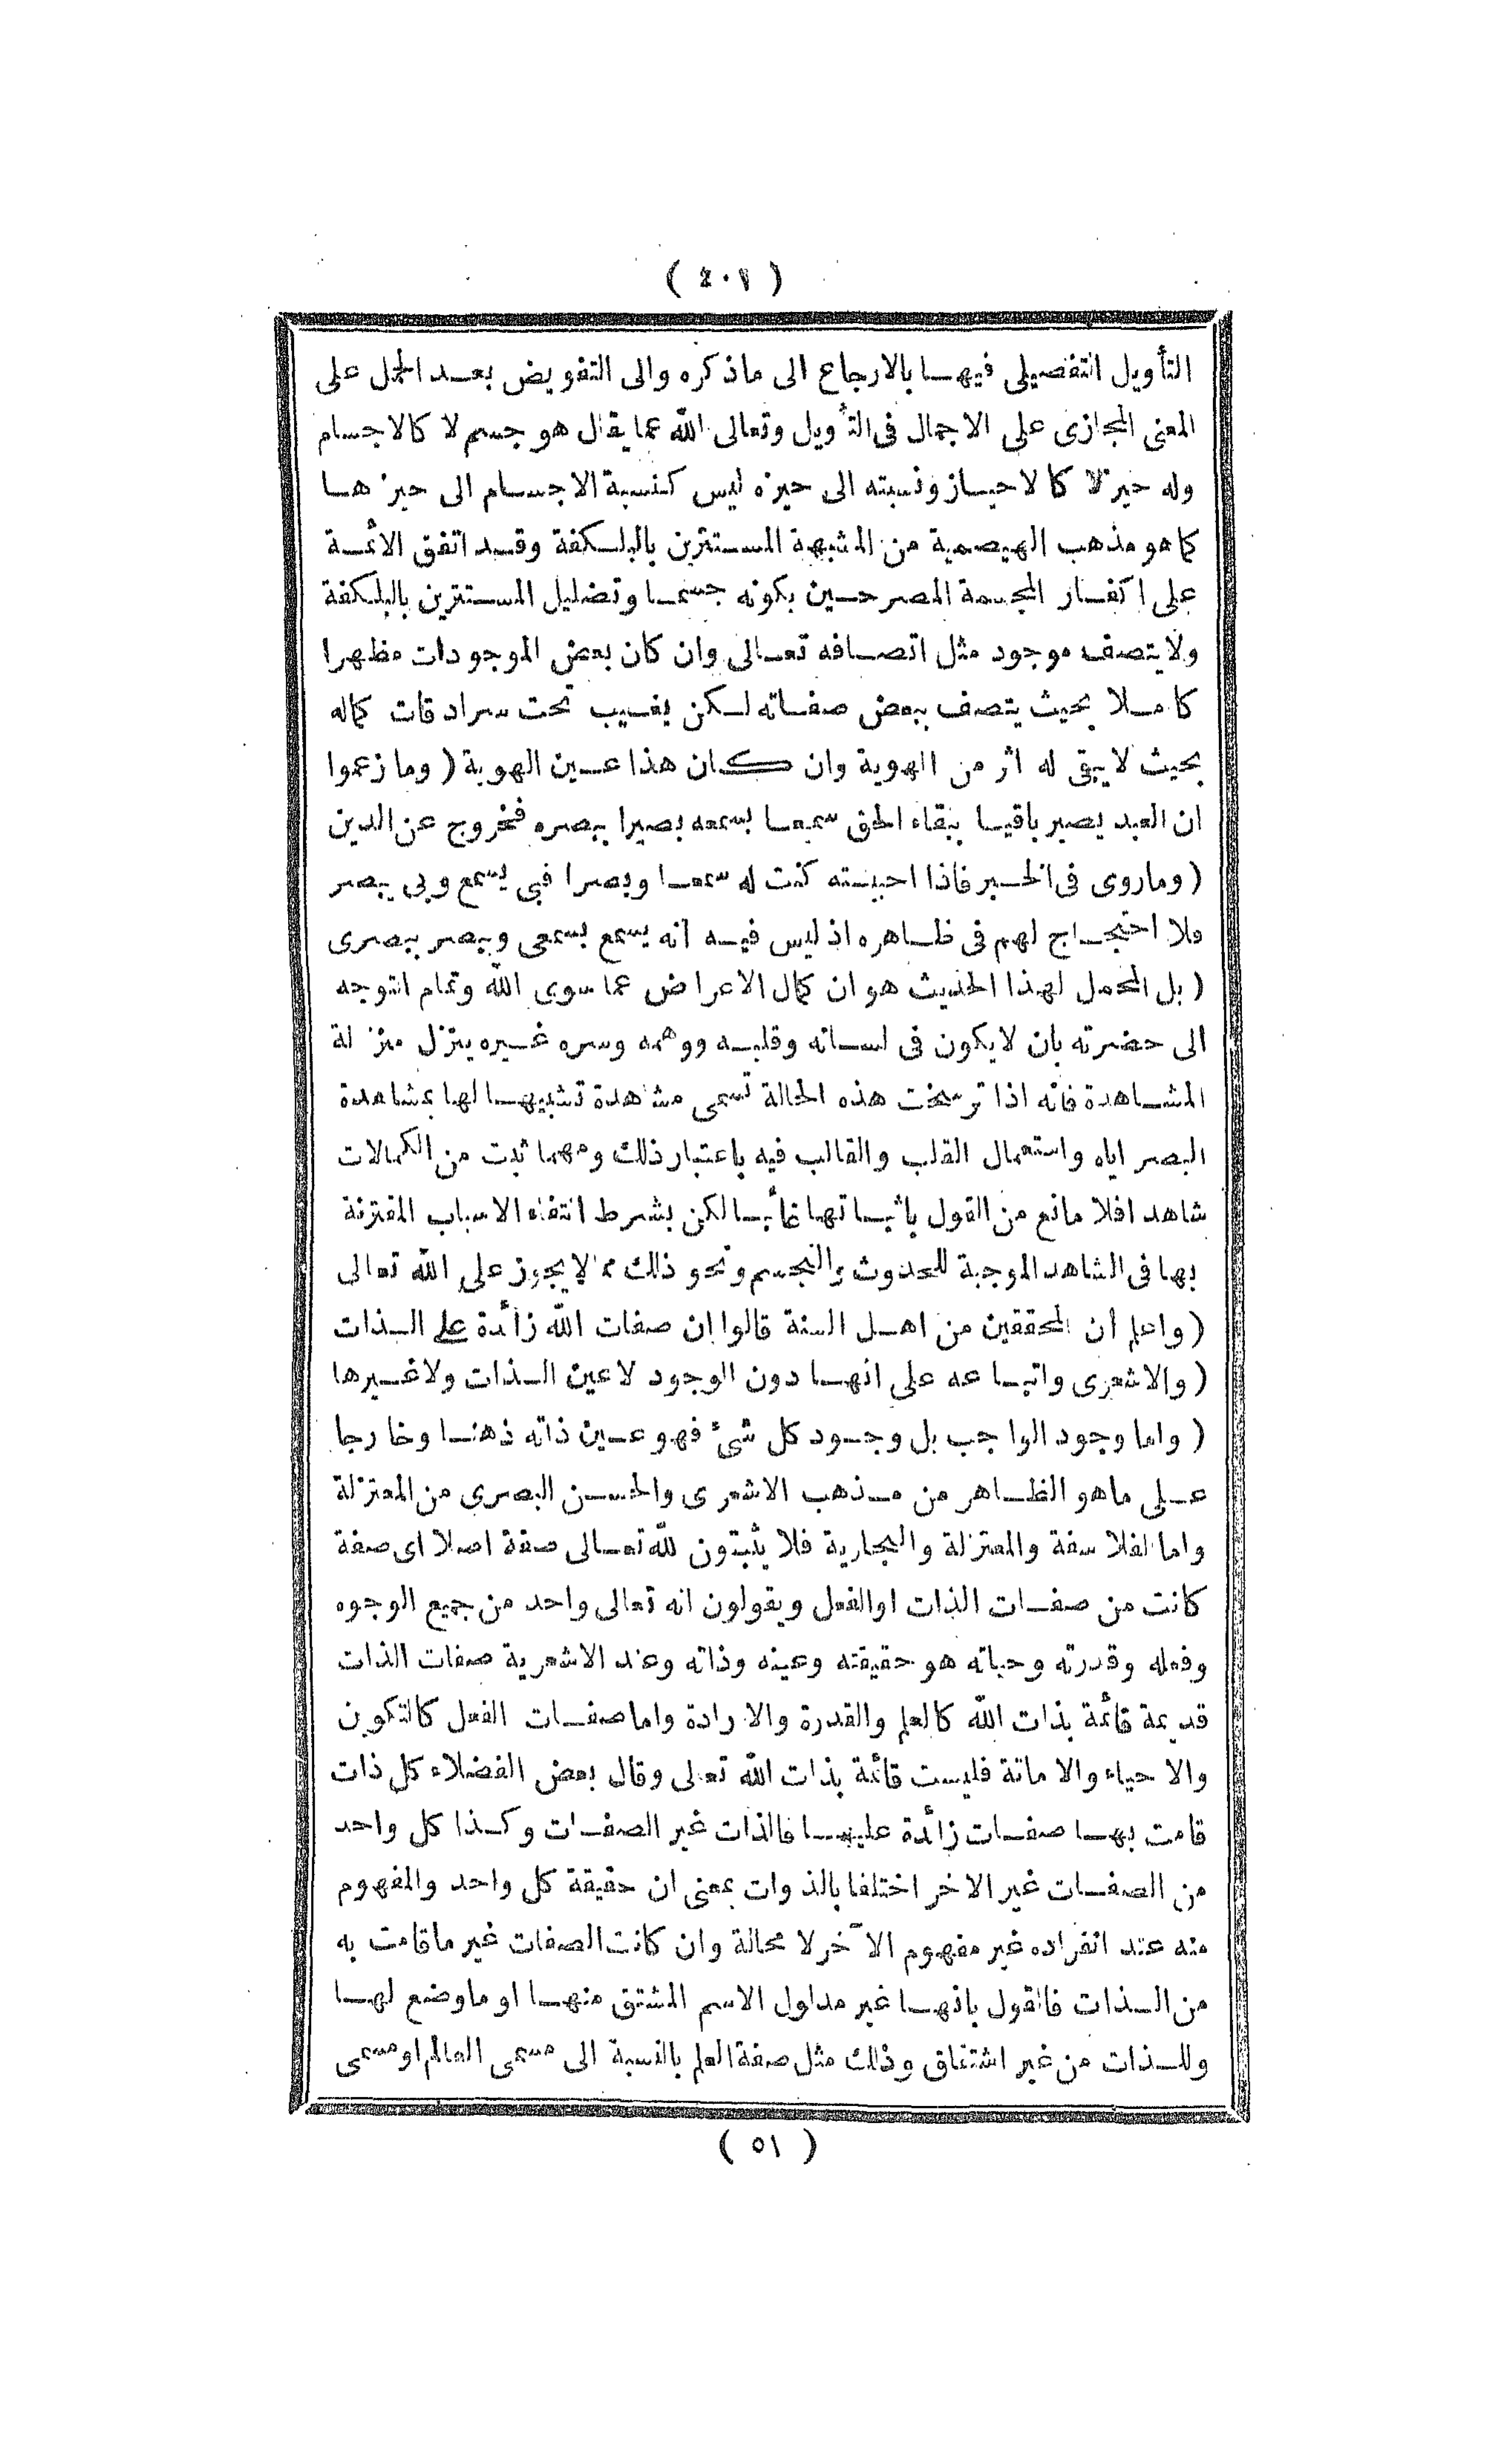 ( ٤٠١ )
التأويل التفصيلى فيهـا بالارجاع الى ماذكره والى التفويض بعـد الحمل على
المعنى المجازى على الاجمال فى التأويل وتعالى الله عما يقال هو جسم لا كالاجسام
وله حيز لا كالاحيـاز ونسبته الى حيزه ليس كنسبة الاجسـام الى حيزهـا
كما هو مذهب الهيصمية من المشبهة المسـتترين بالبلـكفة وقـد اتفق الائمـة
على اكفـار المجسمة المصرحـين بكونه جسمـا وتضليل المسـتترين بالبلـكفة
ولا يتصف موجود مثل اتصـافه تعـالى وان كان بعض الموجودات مظهرا
كامـلا بحيث يتصف ببعض صفـاته لـكن يغـيب تحت سرادقات كماله
بحيث لا يبقى له اثر من الهوية وان كـان هذا عـين الهوية ( وما زعموا
ان العبد يصير باقيـا ببقاء الحق سميعـا بسمعه بصيرا ببصره فخروج عن الدين
( وماروى فى الخـبر فاذا احببـته كنت له سمعـا وبصرا فبى يسمع وبى يبصر
فلا احتجـاج لهم فى ظـاهره اذ ليس فيـه انه يسمع بسمعى ويبصر ببصرى
( بل المحمل لهذا الحديث هو ان كمال الاعراض عما سوى الله وتمام التوجه
الى حضرته بان لايكون فى لسـانه وقلبـه ووهمه وسره غـيره ينزل منزلة
المشـاهدة فانه اذا ترسخت هذه الحالة تسمى مشاهدة تشبيهـا لها بمشاهدة
البصر اياه واستعمال القلب والقالب فيه باعتبار ذلك ومهما ثبت من الكمالات
شاهدا فلا مانع من القول باثبـاتها غائبـا لكن بشرط انتفاء الاسباب المقترنة
بها فى الشاهد الموجبة للحدوث والتجسم ونحو ذلك مما لا يجوز على الله تعالى
( واعلم ان المحققين من اهـل السنة قالوا ان صفات الله زائدة على الـذات
( والاشعرى واتبـاعه على انهـا دون الوجود لاعين الـذات ولاغـيرها
( واما وجود الواجب بل وجـود كل شئ فهو عـين ذاته ذهنـا وخارجا
عـلى ماهو الظـاهر من مـذهب الاشعرى والحسـن البصرى من المعتزلة
واما الفلاسفة والمعتزلة والنجارية فلا يثبتون لله تعـالى صفة اصلا اى صفة
كانت من صفـات الذات او الفعل ويقولون انه تعالى واحد من جميع الوجوه
وفعله وقدرته وحياته هو حقيقته وعينه وذاته وعند الاشعرية صفات الذات
قديمة قائمة بذات الله كالعلم والقدرة والارادة واما صفـات الفعل كالتكوين
والاحياء والاماتة فليست قائمة بذات الله تعالى وقال بعض الفضلاء كل ذات
قامت بهـا صفـات زائدة عليهـا فالذات غير الصفـات وكـذا كل واحد
من الصفـات غير الاخر اختلفا بالذوات بمعنى ان حقيقة كل واحد والمفهوم
منه عند انفراده غير مفهوم الآخر لا محالة وان كانت الصفات غير ماقامت به
من الـذات فالقول بانهـا غير مدلول الاسم المشتق منهـا او ماوضع لهـا
وللـذات من غير اشتقاق وذلك مثل صفة العلم بالنسبة الى مسمى العالم او مسمى
( ٥١ )